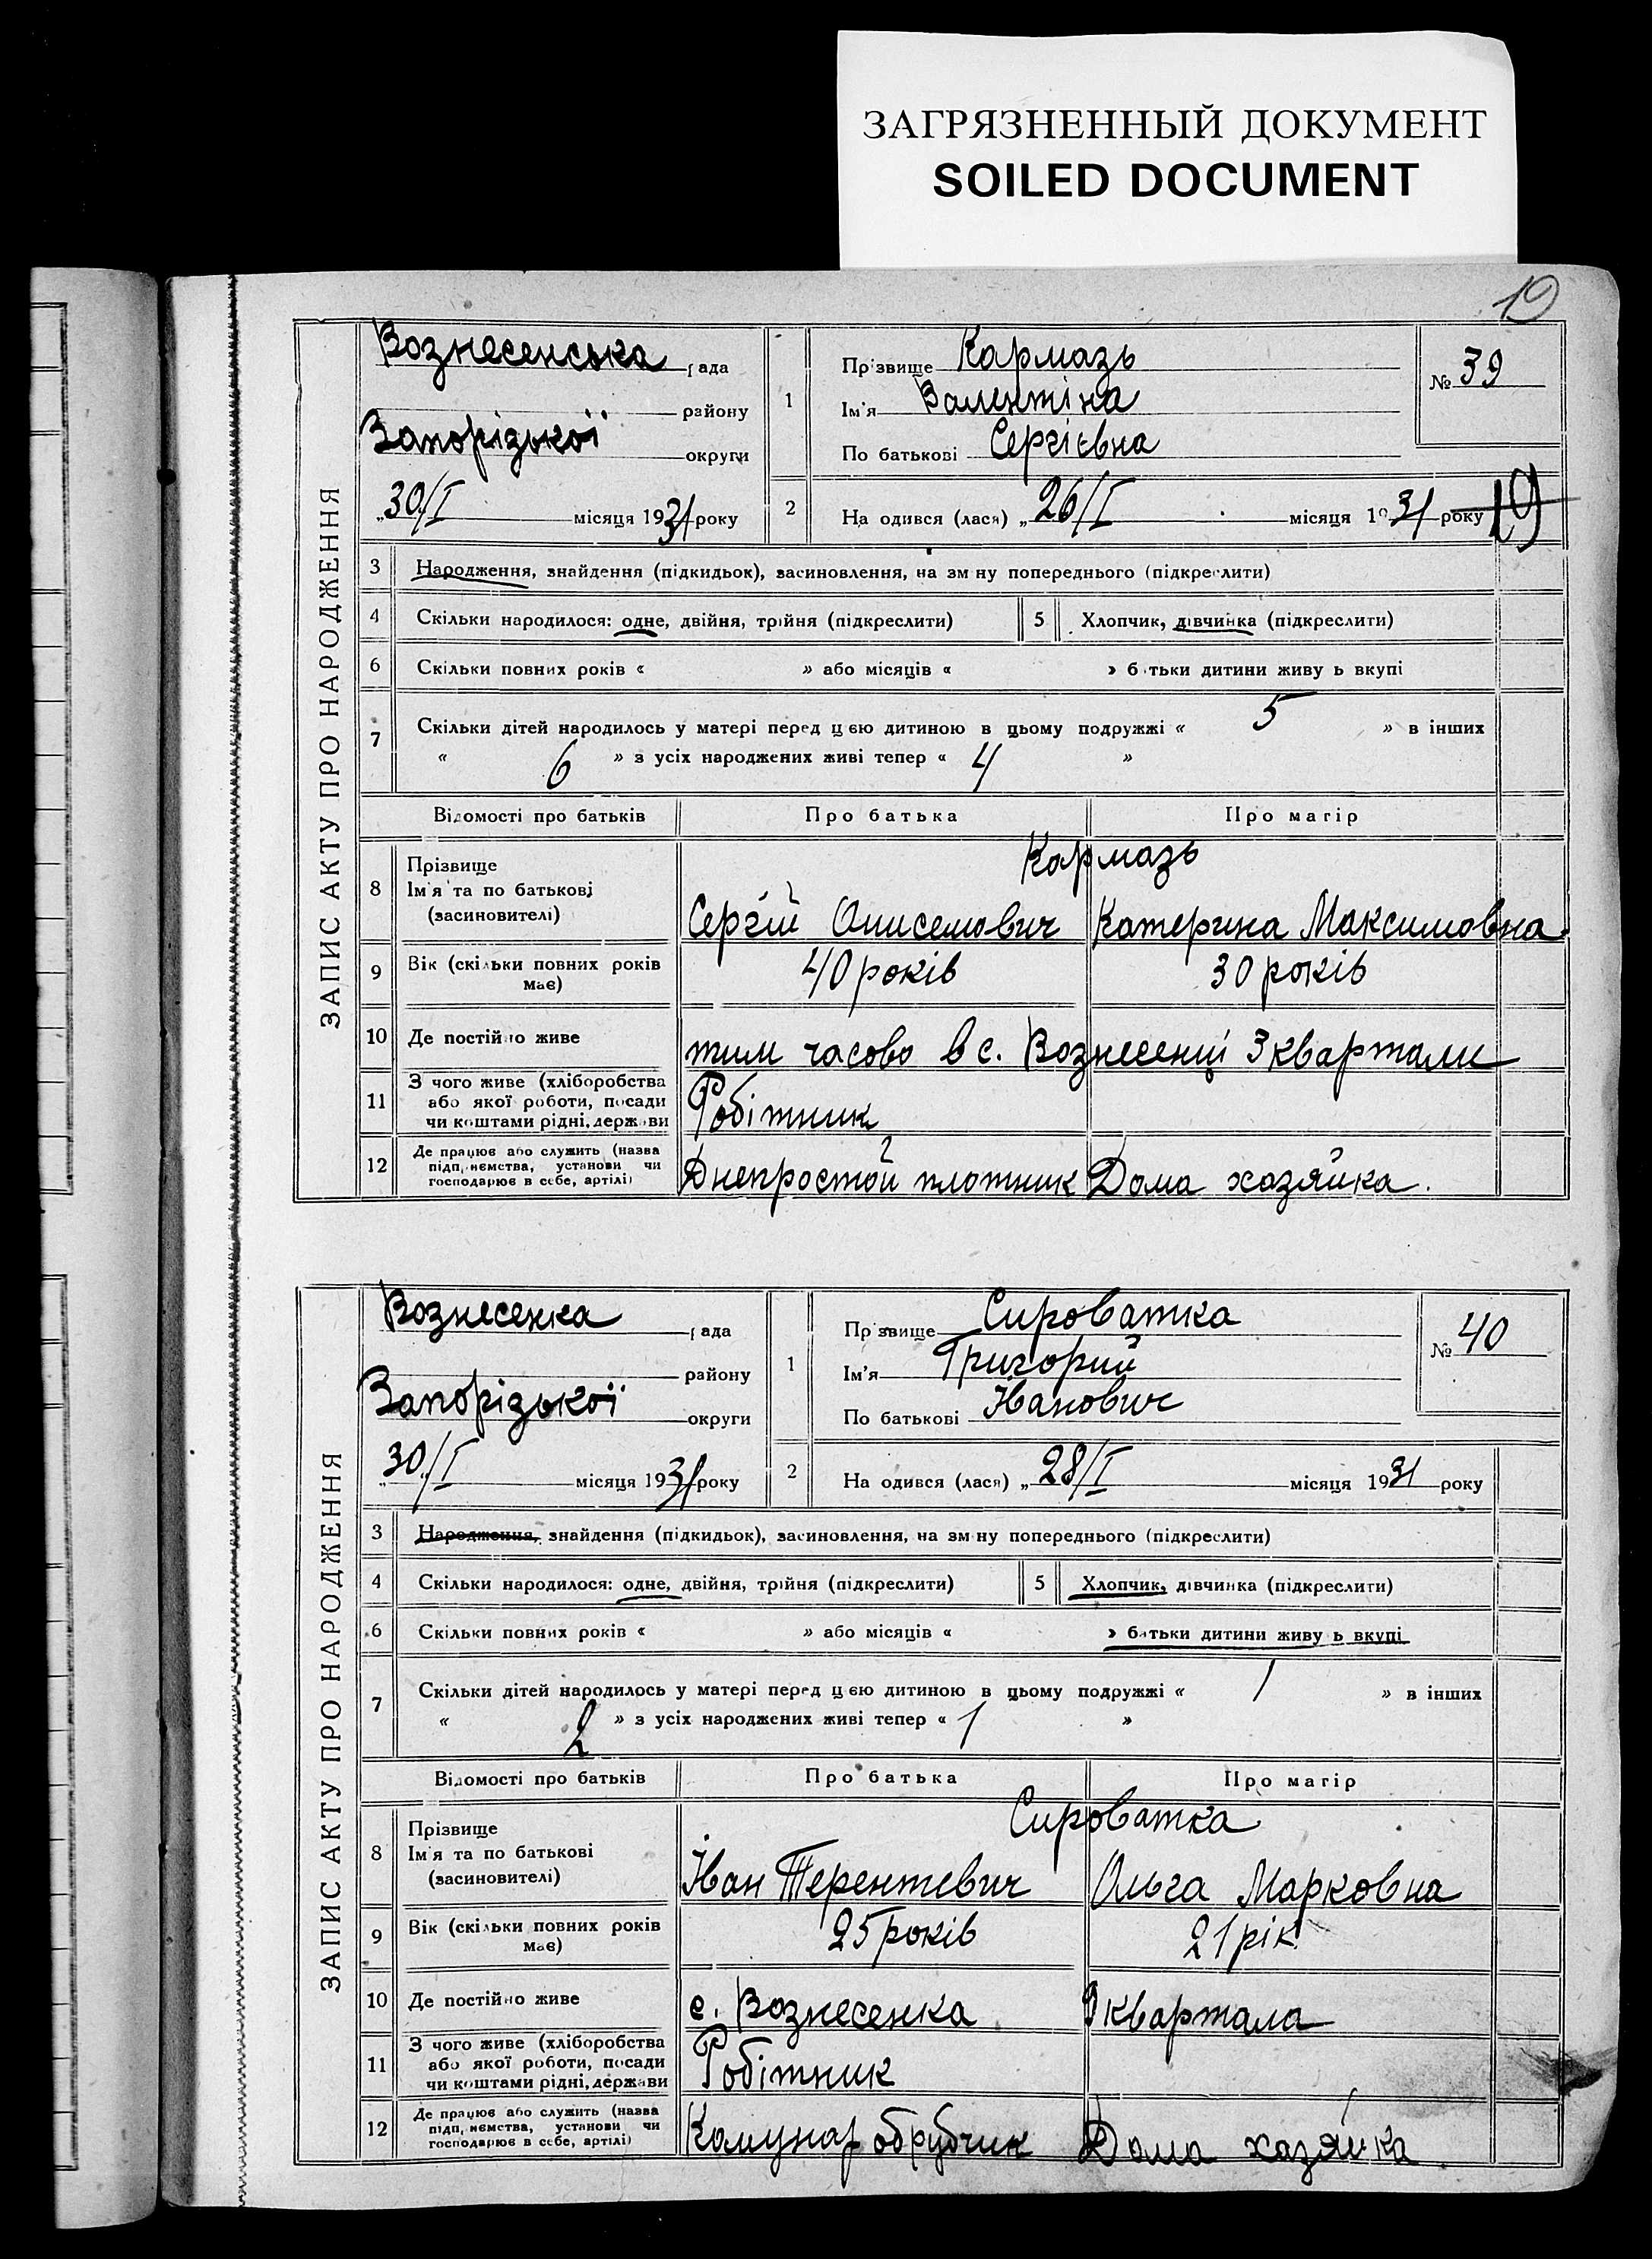 ЗАГРЯЗНЕННЫЙ ДОКУМЕНТ
SOILED DOCUMENT
19
ЗАПИС АКТУ ПРО НАРОДЖЕННЯ
Вознесенська рада
району
Запорізької округи
„30/I місяця 1931 року
1
Прізвище Кармазь
Ім'я Валентіна
По батькові Сергієвна
№ 39
2
На одився (лася) „26/I місяця 1931 року
19
3 Народження, знайдення (підкидьок), засиновлення, на зм ну попереднього (підкреслити)
4 Скільки народилося: одне, двійня, трійня (підкреслити)
5 Хлопчик, дівчинка (підкреслити)
6 Скільки повних років « » або місяців « » б тьки дитини живу ь вкупі
7 Скільки дітей народилось у матері перед цею дитиною в цьому подружжі « 5 » в інших
« 6 » з усіх народжених живі тепер « 4 »
Відомості про батьків Про батька Про матір
8 Прізвище
Ім'я та по батькові
(засиновителі)
Кармазь
Сергій Онисемович Катерина Максимовна
9 Вік (скільки повних років має) 40 років 30 років
10 Де постійно живе тим часово в с. Вознесенці 3 квартали
11 З чого живе (хліборобства
або якої роботи, посади
чи коштами рідні, держави
Робітник
12 Де працює або служить (назва
підприємства, установи чи
господарює в себе, артілі)
Днепрострой плотник Дома хозяйка.
ЗАПИС АКТУ ПРО НАРОДЖЕННЯ
Вознесенка рада
району
Запорізької округи
„30/I місяця 1931 року
1
Прізвище Сироватка
Ім'я Григорий
По батькові Іванович
№ 40
2
На одився (лася) „28/I місяця 1931 року
3 Народження, знайдення (підкидьок), засиновлення, на зм ну попереднього (підкреслити)
4 Скільки народилося: одне, двійня, трійня (підкреслити)
5 Хлопчик, дівчинка (підкреслити)
6 Скільки повних років « » або місяців « » батьки дитини живу ь вкупі
7 Скільки дітей народилось у матері перед цею дитиною в цьому подружжі « 1 » в інших
« 2 » з усіх народжених живі тепер « 1 »
Відомості про батьків Про батька Про матір
8 Прізвище
Ім'я та по батькові
(засиновителі)
Сироватка
Іван Терентевич Ольга Марковна
9 Вік (скільки повних років має) 25 років 21 рік
10 Де постійно живе с. Вознесенка 9 квартала
11 З чого живе (хліборобства
або якої роботи, посади
чи коштами рідні, держави
Робітник
12 Де працює або служить (назва
підприємства, установи чи
господарює в себе, артілі)
Комунар обрубчик Дома хазяйка